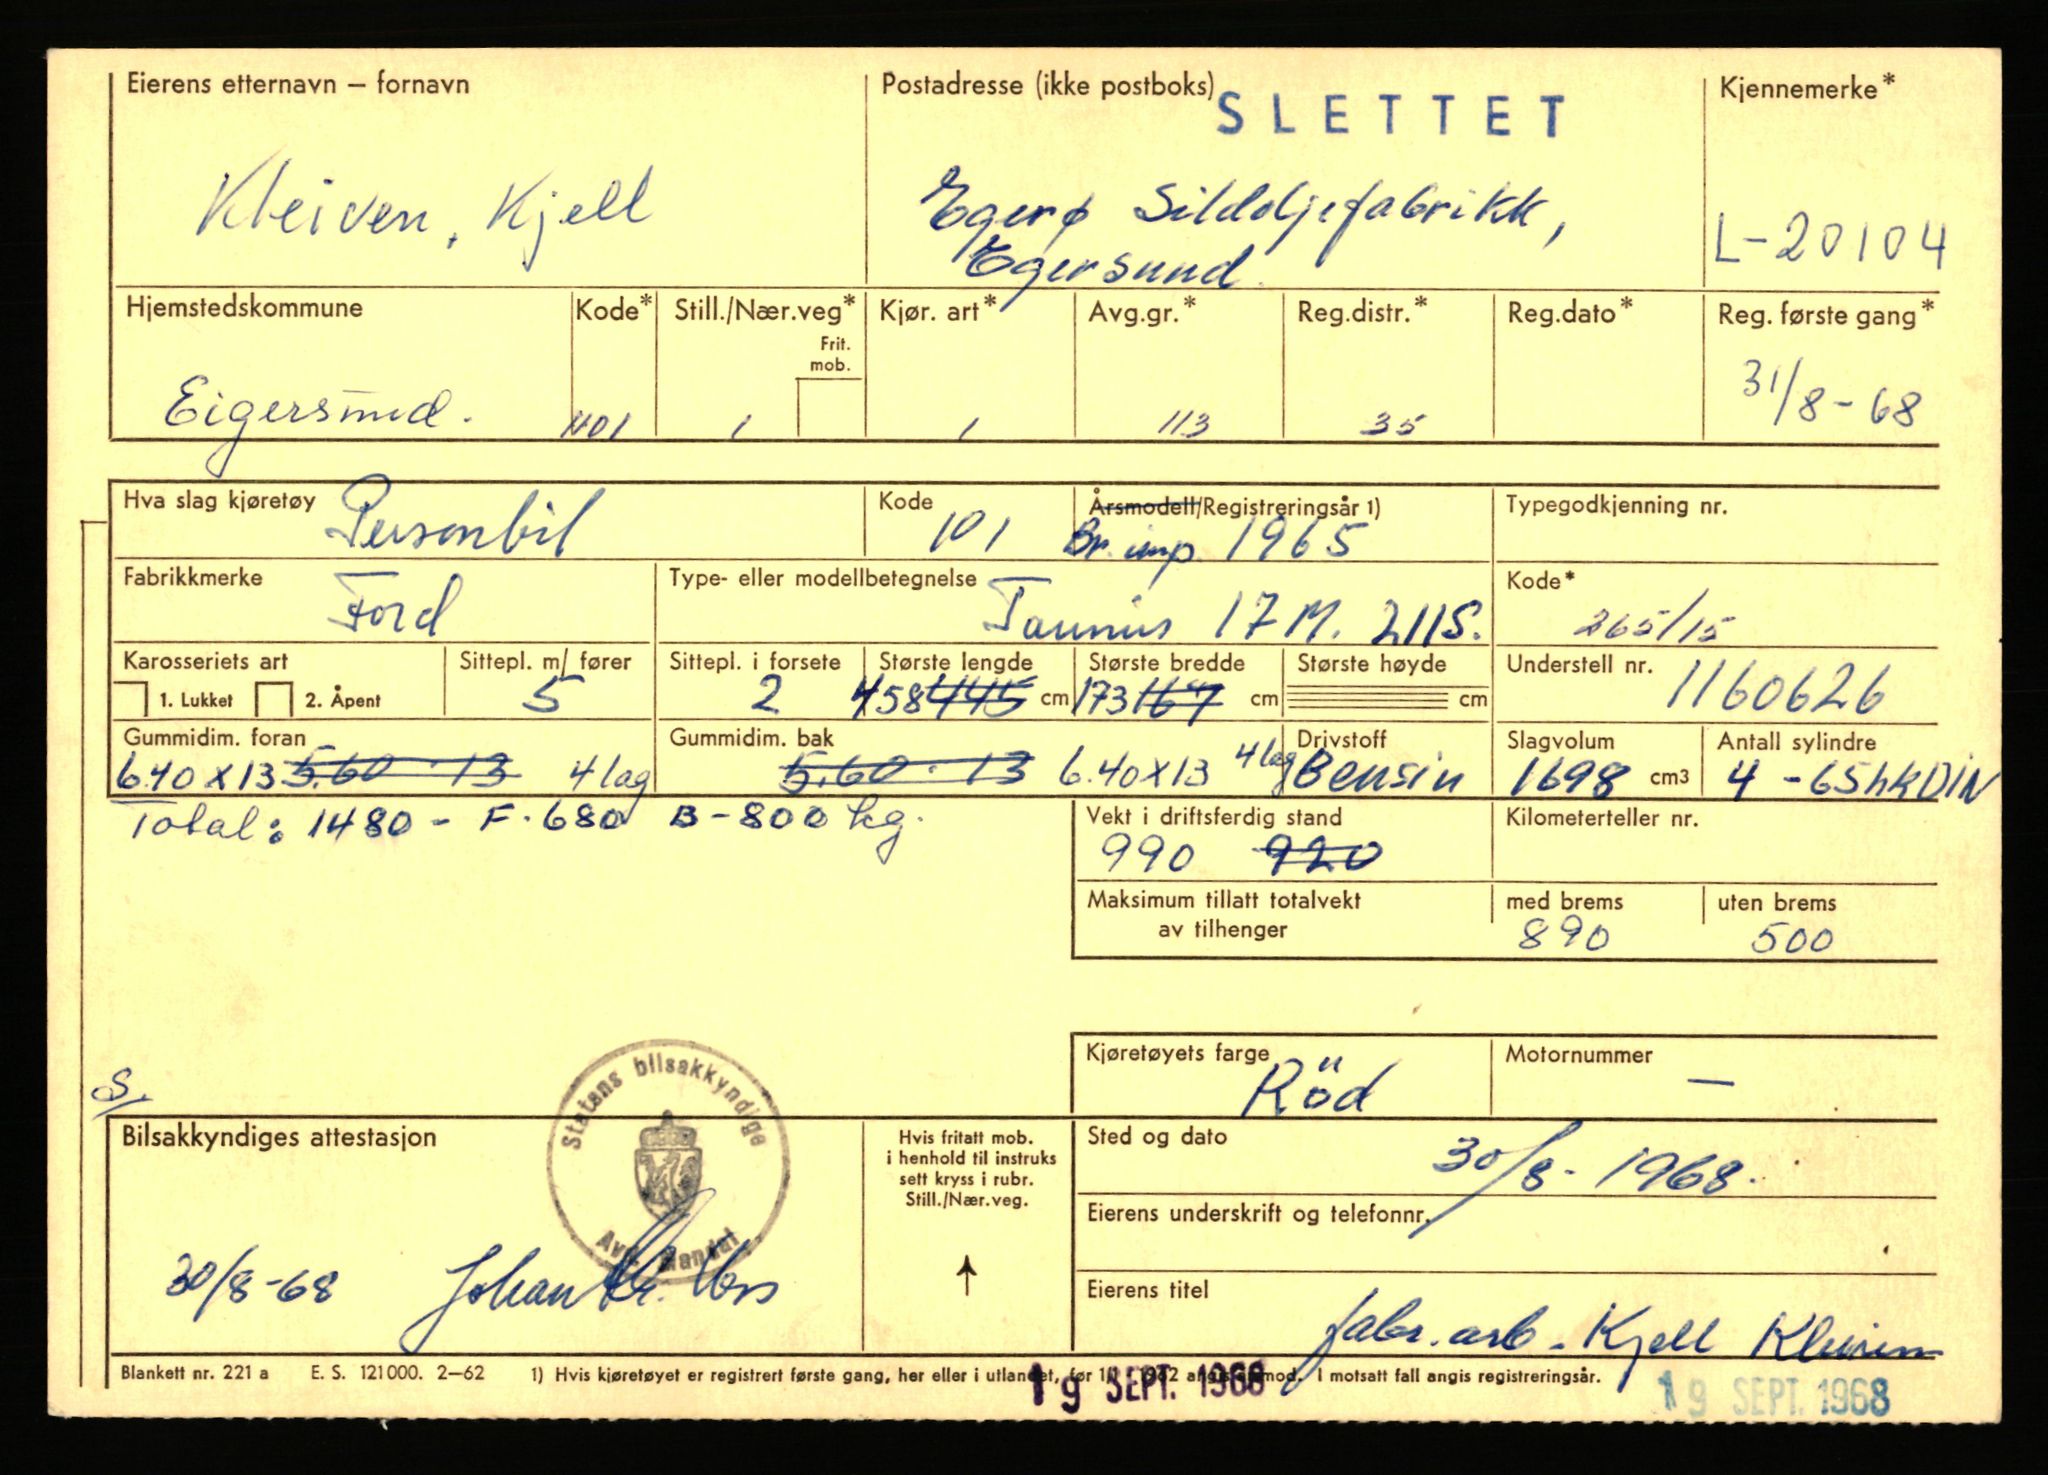 Eierens etternavn – fornavn
Postadresse (ikke postboks)
SLETTET
Kjennemerke*
Kleiven, Kjell
Egerø Sildoljefabrikk,
Egersund.
L-20104
Hjemstedskommune
Kode*
Still./Nær.veg*
Frit. mob.
Kjør. art*
Avg.gr.*
Reg.distr.*
Reg.dato*
Reg. første gang*
Eigersund.
1101
1
1
113
35
31/8-68
Hva slag kjøretøy
Personbil
Kode
101
Årsmodell/Registreringsår 1)
Br. imp. 1965
Typegodkjenning nr.
Fabrikkmerke
Ford
Type- eller modellbetegnelse
Taunus 17 M. 211S.
Kode*
265/15
Karosseriets art
1. Lukket
2. Åpent
Sittepl. m/ fører
5
Sittepl. i forsete
2
Største lengde
458 445 cm
Største bredde
173 167 cm
Største høyde
cm
Understell nr.
1160626
Gummidim. foran
6.40 X 13 5.60 - 13 4 lag
Gummidim. bak
5.60 - 13 6.40 X 13 4 lag
Drivstoff
Bensin
Slagvolum
1698 cm3
Antall sylindre
4 - 65 hk DIN
Total: 1480 - F. 680 B - 800 kg.
Vekt i driftsferdig stand
990 920
Kilometerteller nr.
Maksimum tillatt totalvekt
av tilhenger
med brems
890
uten brems
500
Kjøretøyets farge
Röd
Motornummer
—
S.
Statens bilsakkyndige
Bilsakkyndiges attestasjon
Hvis fritatt mob.
i henhold til instruks
sett kryss i rubr.
Still./Nær.veg.
Sted og dato
30/8-1968.
Eierens underskrift og telefonnr.
30/8-68
Johan
Eierens titel
fabr. arb. Kjell Kleiven
Blankett nr. 221 a E. S. 121000. 2–62 1) Hvis kjøretøyet er registrert første gang, her eller i utlandet, før 1/1 1962 angis årsmod. I motsatt fall angis registreringsår.
19 SEPT. 1968
19 SEPT. 1968